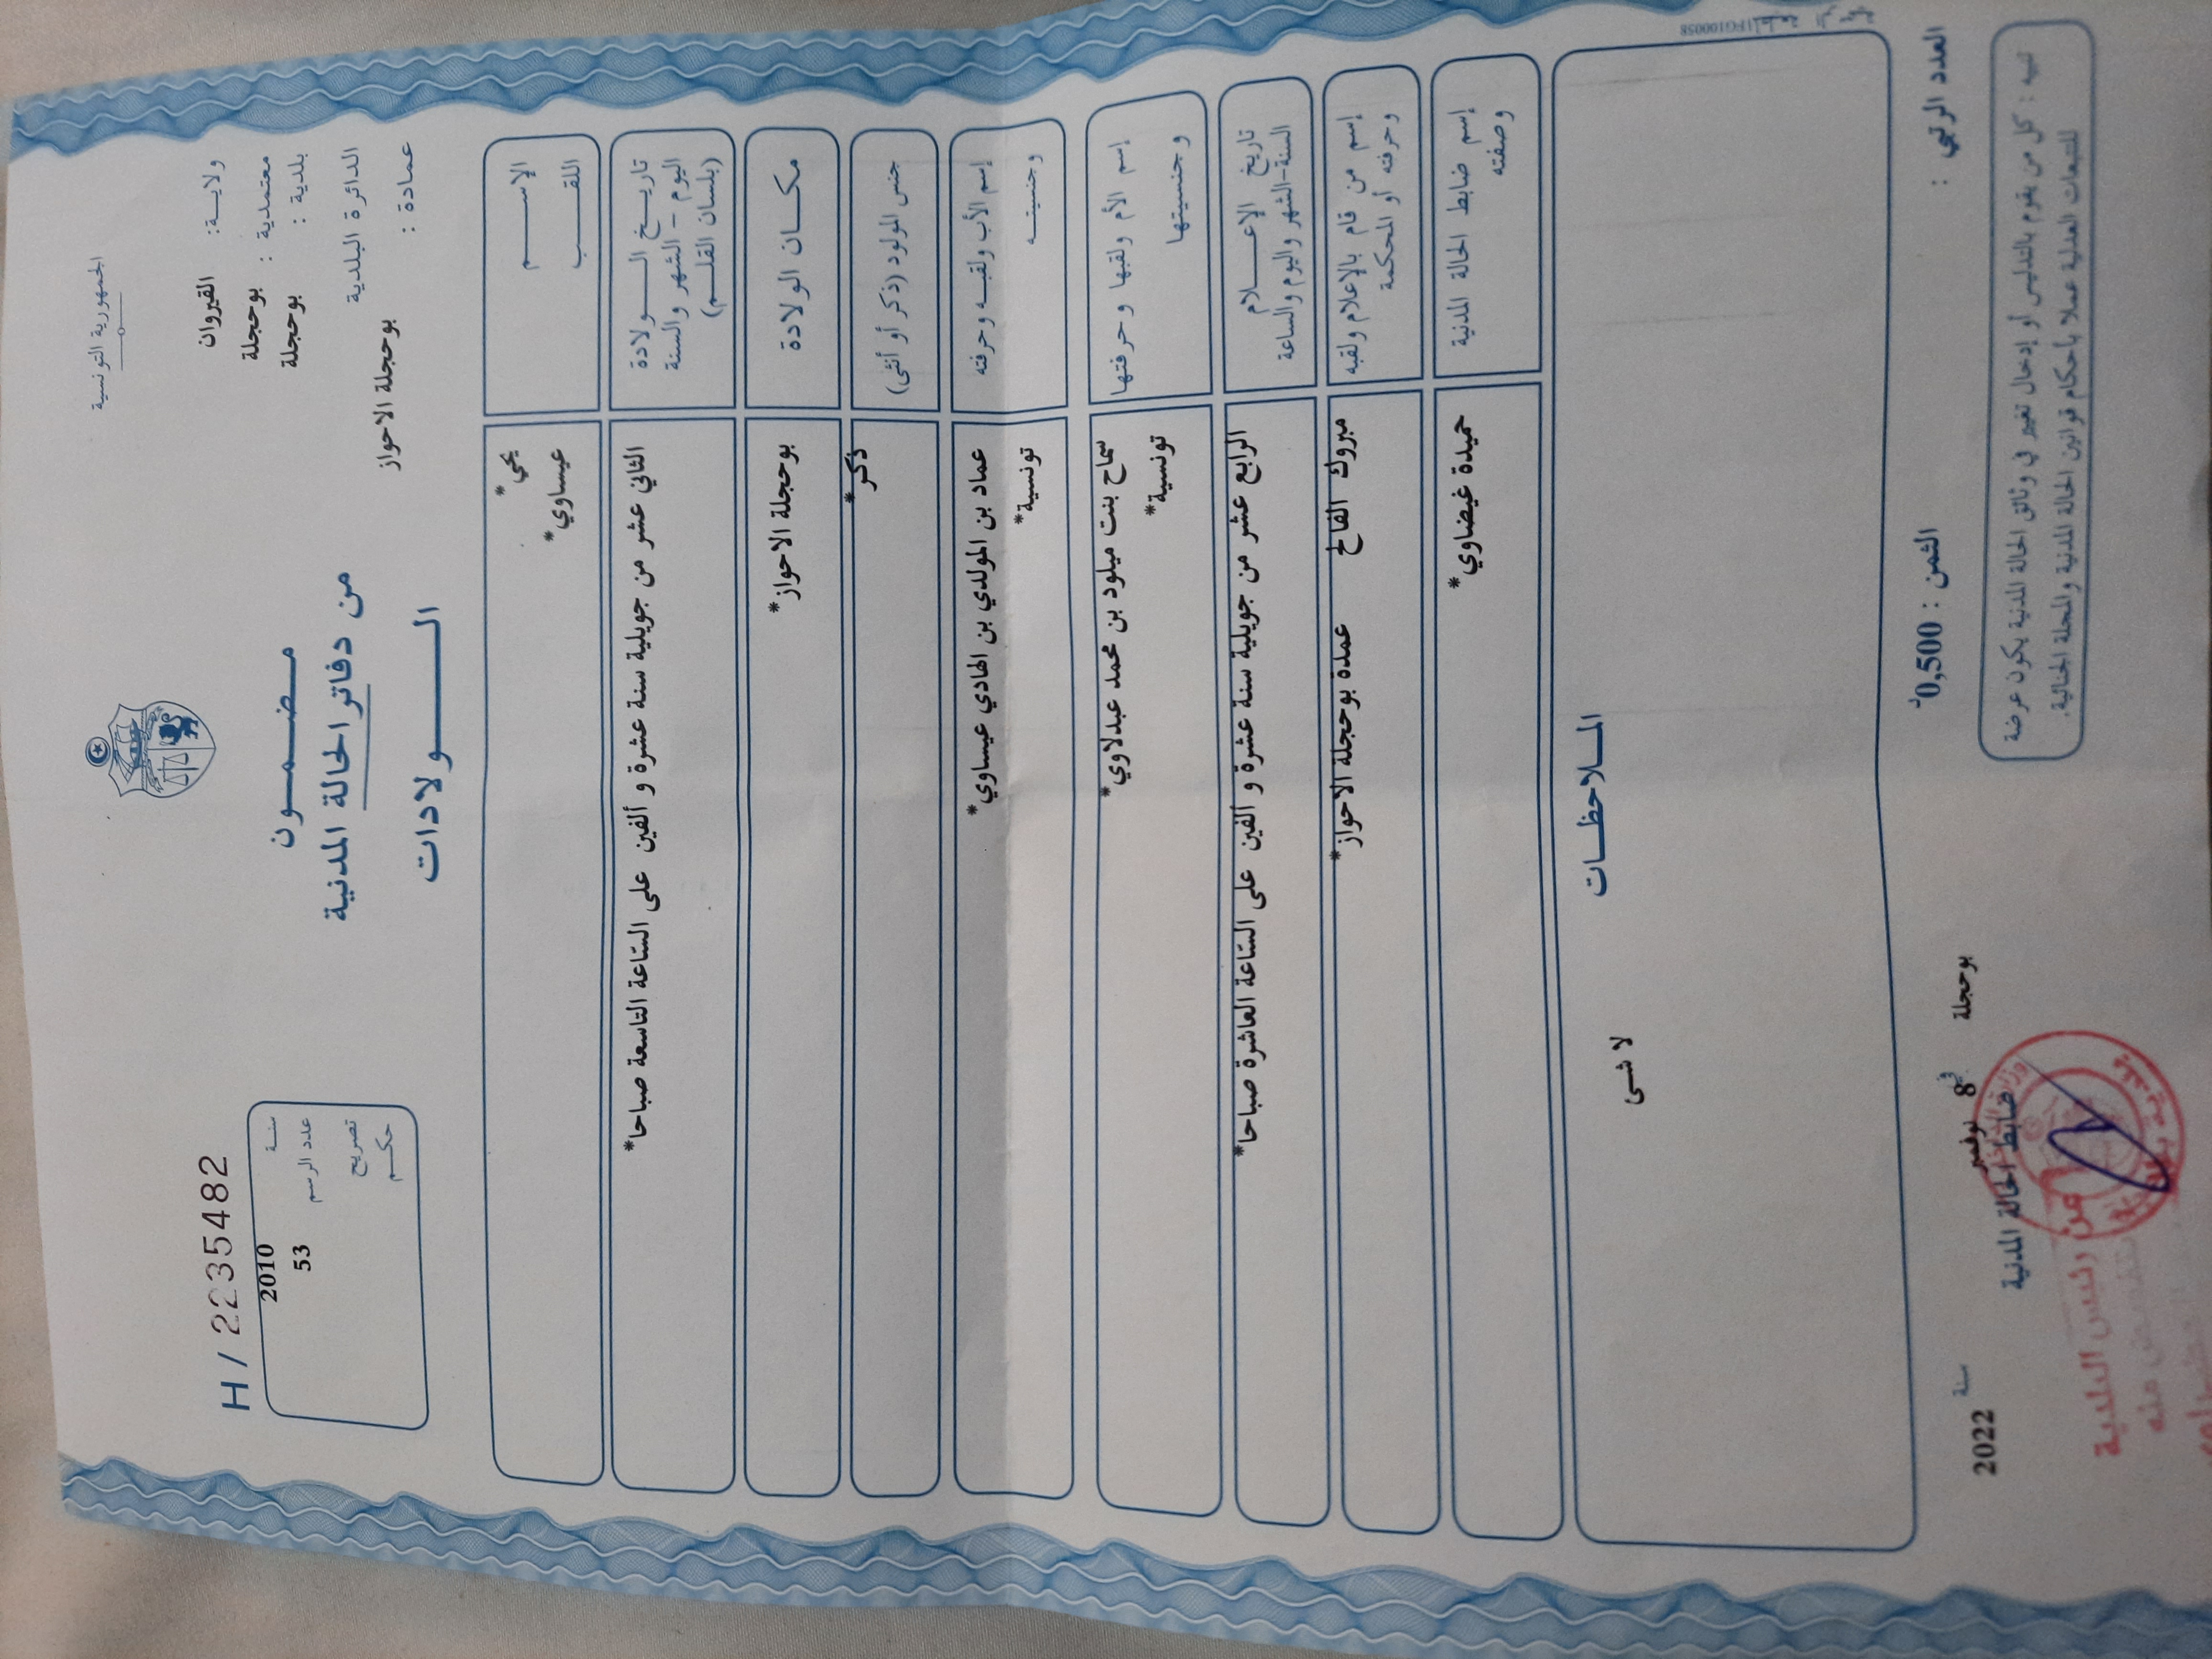 الجمهورية التونسية
ولايــة: القيروان
معتمدية : بوحجلة
بلدية : بوحجلة
الدائرة البلدية
عمادة : بوحجلة الاحواز
H / 2235482
سنة 2010
عدد الرسم 53
تصريح
حكم
مـضـمـون
من دفاتر الحالة المدنية
الـولادات
الإسـم
يحي*
اللقـب
عيساوي*
تاريـخ الـولادة
اليوم - الشهر والسنة
(بلسان القلـم)
الثاني عشر من جويلية سنة عشرة و ألفين على الساعة التاسعة صباحا*
مكـان الولادة
بوحجلة الاحواز*
جنس المولود (ذكر أو أنثى)
ذكر*
إسم الأب ولقبه وحرفته
وجنسيتـه
عماد بن المولدي بن الهادي عيساوي*
تونسية*
إسم الأم ولقبها وحرفتها
وجنسيتها
سماح بنت ميلود بن محمد عبدلاوي*
تونسية*
تاريخ الإعـلام
السنة-الشهر واليوم والساعة
الرابع عشر من جويلية سنة عشرة و ألفين على الساعة العاشرة صباحا*
إسم من قام بالإعلام ولقبه
وحرفته أو المحكمة
مبروك الفالح عمدة بوحجلة الاحواز*
إسم ضابط الحالة المدنية
وصفته
حميدة غيضاوي*
المـلاحظـات
لا شى
العدد الرتبي :
الثمن : 0,500د
بوحجلة في 8 نوفمبر سنة 2022
ضابط الحالة المدنية
عن رئيس البلدية
تنبيه : كل من يقوم بالتدليس أو إدخال تغيير في وثائق الحالة المدنية يكون عرضة
للتتبعات العدلية عملا بأحكام قوانين الحالة المدنية والمجلة الجنائية.